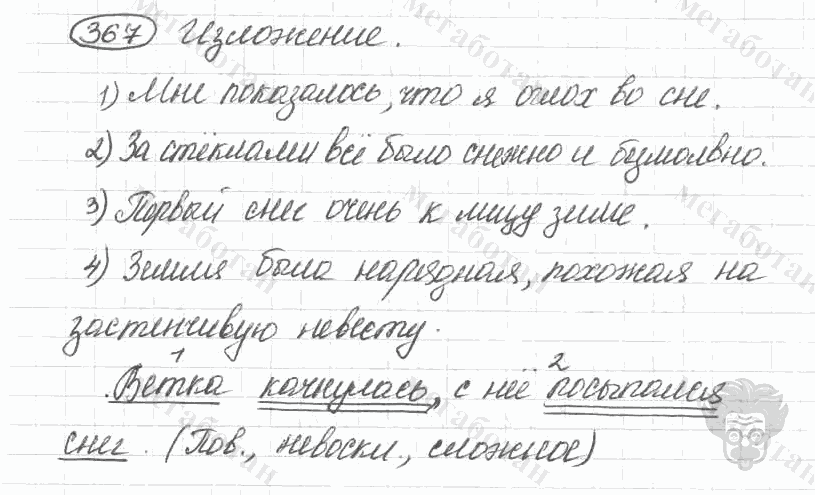 367 Изложение.
1) Мне показалось, что я оглох во сне.
2) За стёклами всё было снежно и безмолвно.
3) Первый снег очень к лицу зиме.
4) Земля была нарядная, похожая на
застенчивую невесту.
1 2
Ветка качнулась, с неё посыпался
снег. (Пов., невоскл., сложное)
мегаботан